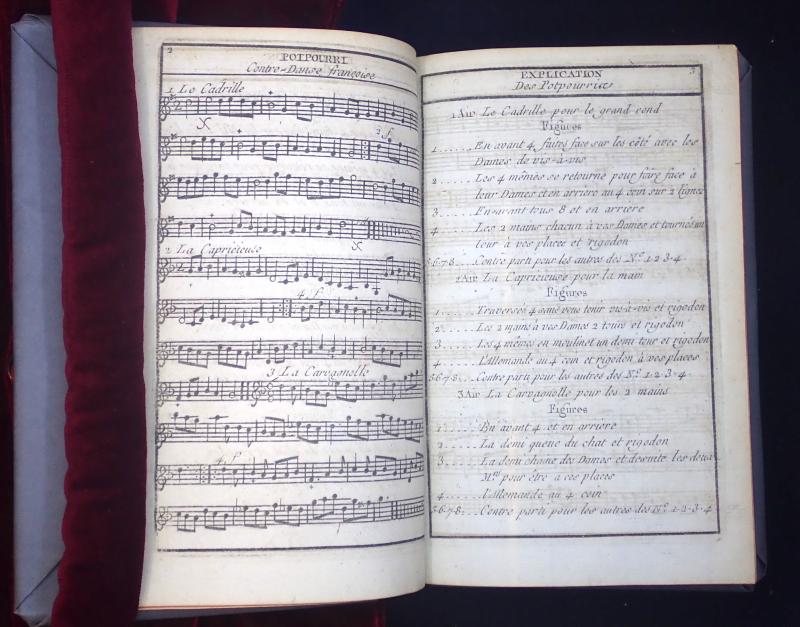 2
POTPOURRI
Contre-Danse françoise
1 Le Cadrille
2 f.
2 La Capricieuse
4. f
3 La Carvagnolle
4. f
EXPLICATION
3
Des Potpourris
1 Air Le Cadrille pour le grand rond
Figures
1 ...... En avant 4, faites face sur les côté avec les
Dames de vis-à-vis
2 ...... Les 4 mêmes se retourne pour faire face à
leur Dames et en arriere au 4 coin sur 2 lignes
3 ...... En avant tous 8 et en arriere
4 ...... Les 2 mains chacun à vos Dames et tourné un
tour à vos places et rigodon
5·6·7·8 ... Contre parti pour les autres des N.º 1·2·3·4
2 Air La Capricieuse pour la main
Figures
1 ...... Traversés 4 sans vous tenir vis-à-vis et rigodon
2 ...... Les 2 mains à vos Dames 2 tours et rigodon
3 ...... Les 4 mêmes en moulinet un demi tour et rigodon
4 ...... L'Allemande au 4 coin et rigodon à vos places
5·6·7·8 ... Contre parti pour les autres des N.º 1·2·3·4
3 Air La Carvagnolle pour les 2 mains
Figures
1 ...... En avant 4 et en arriere
2 ...... La demi queue du chat et rigodon
3 ...... La demi chaine des Dames et desuite les deux
M.rs pour être à ses places
4 ...... L'allemande au 4 coin
5·6·7·8 ... Contre parti pour les autres des N.º 1·2·3·4